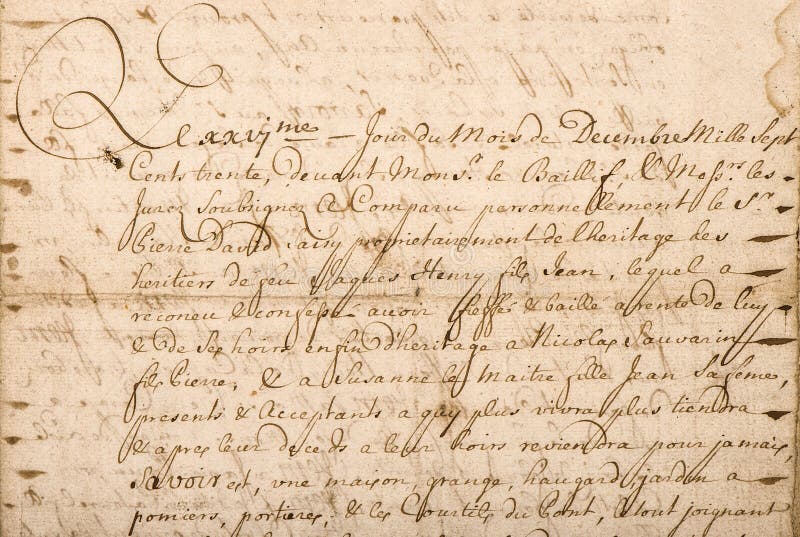 Le xxvj me – Jour du Mois de Decembre Mille Sept
Cents trente, devant Mons.r le Baillif, & Mess.rs les
Jurez Soubsignez A Comparu personnellement le S.r
Pierre David proprietairement de l'heritage des
heritiers de feu Jaques Henry fils Jean, lequel a
reconeu & confessé avoir fieffé & baillé a rente de luy
& de Ses hoirs enfin d'heritage a Nicolas Sauvarin
fils Pierre, & a Susanne le Maitre fille Jean Sa feme,
presents & Acceptants a quy plus vivra plus tiendra
& apres leur deceds a leur hoirs reviendra pour jamais,
Savoir est, vne maison, grange, haugard, jardin a
pomiers, portieres, & les Courtils du Pont, le tout joignant